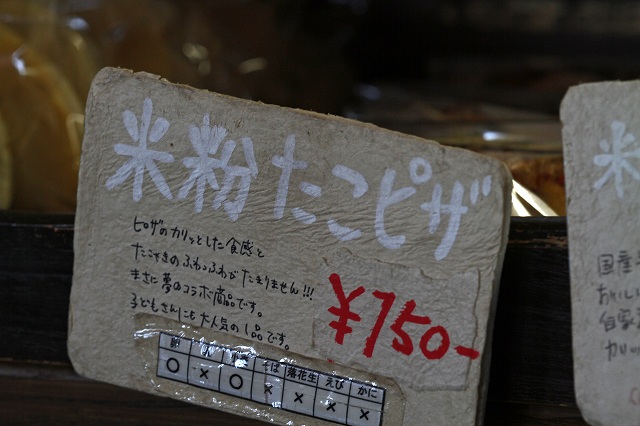 米粉たこピザ
ピザのカリッとした食感と
たこやきのふわっふわがたまりません!!!
まさに夢のコラボ商品です。
子どもさんにも大人気の1品です。
¥750-
卵 乳 小麦 そば 落花生 えび かに
○ × ○ × × × ×
米
国産
おいし
自家
カリッ